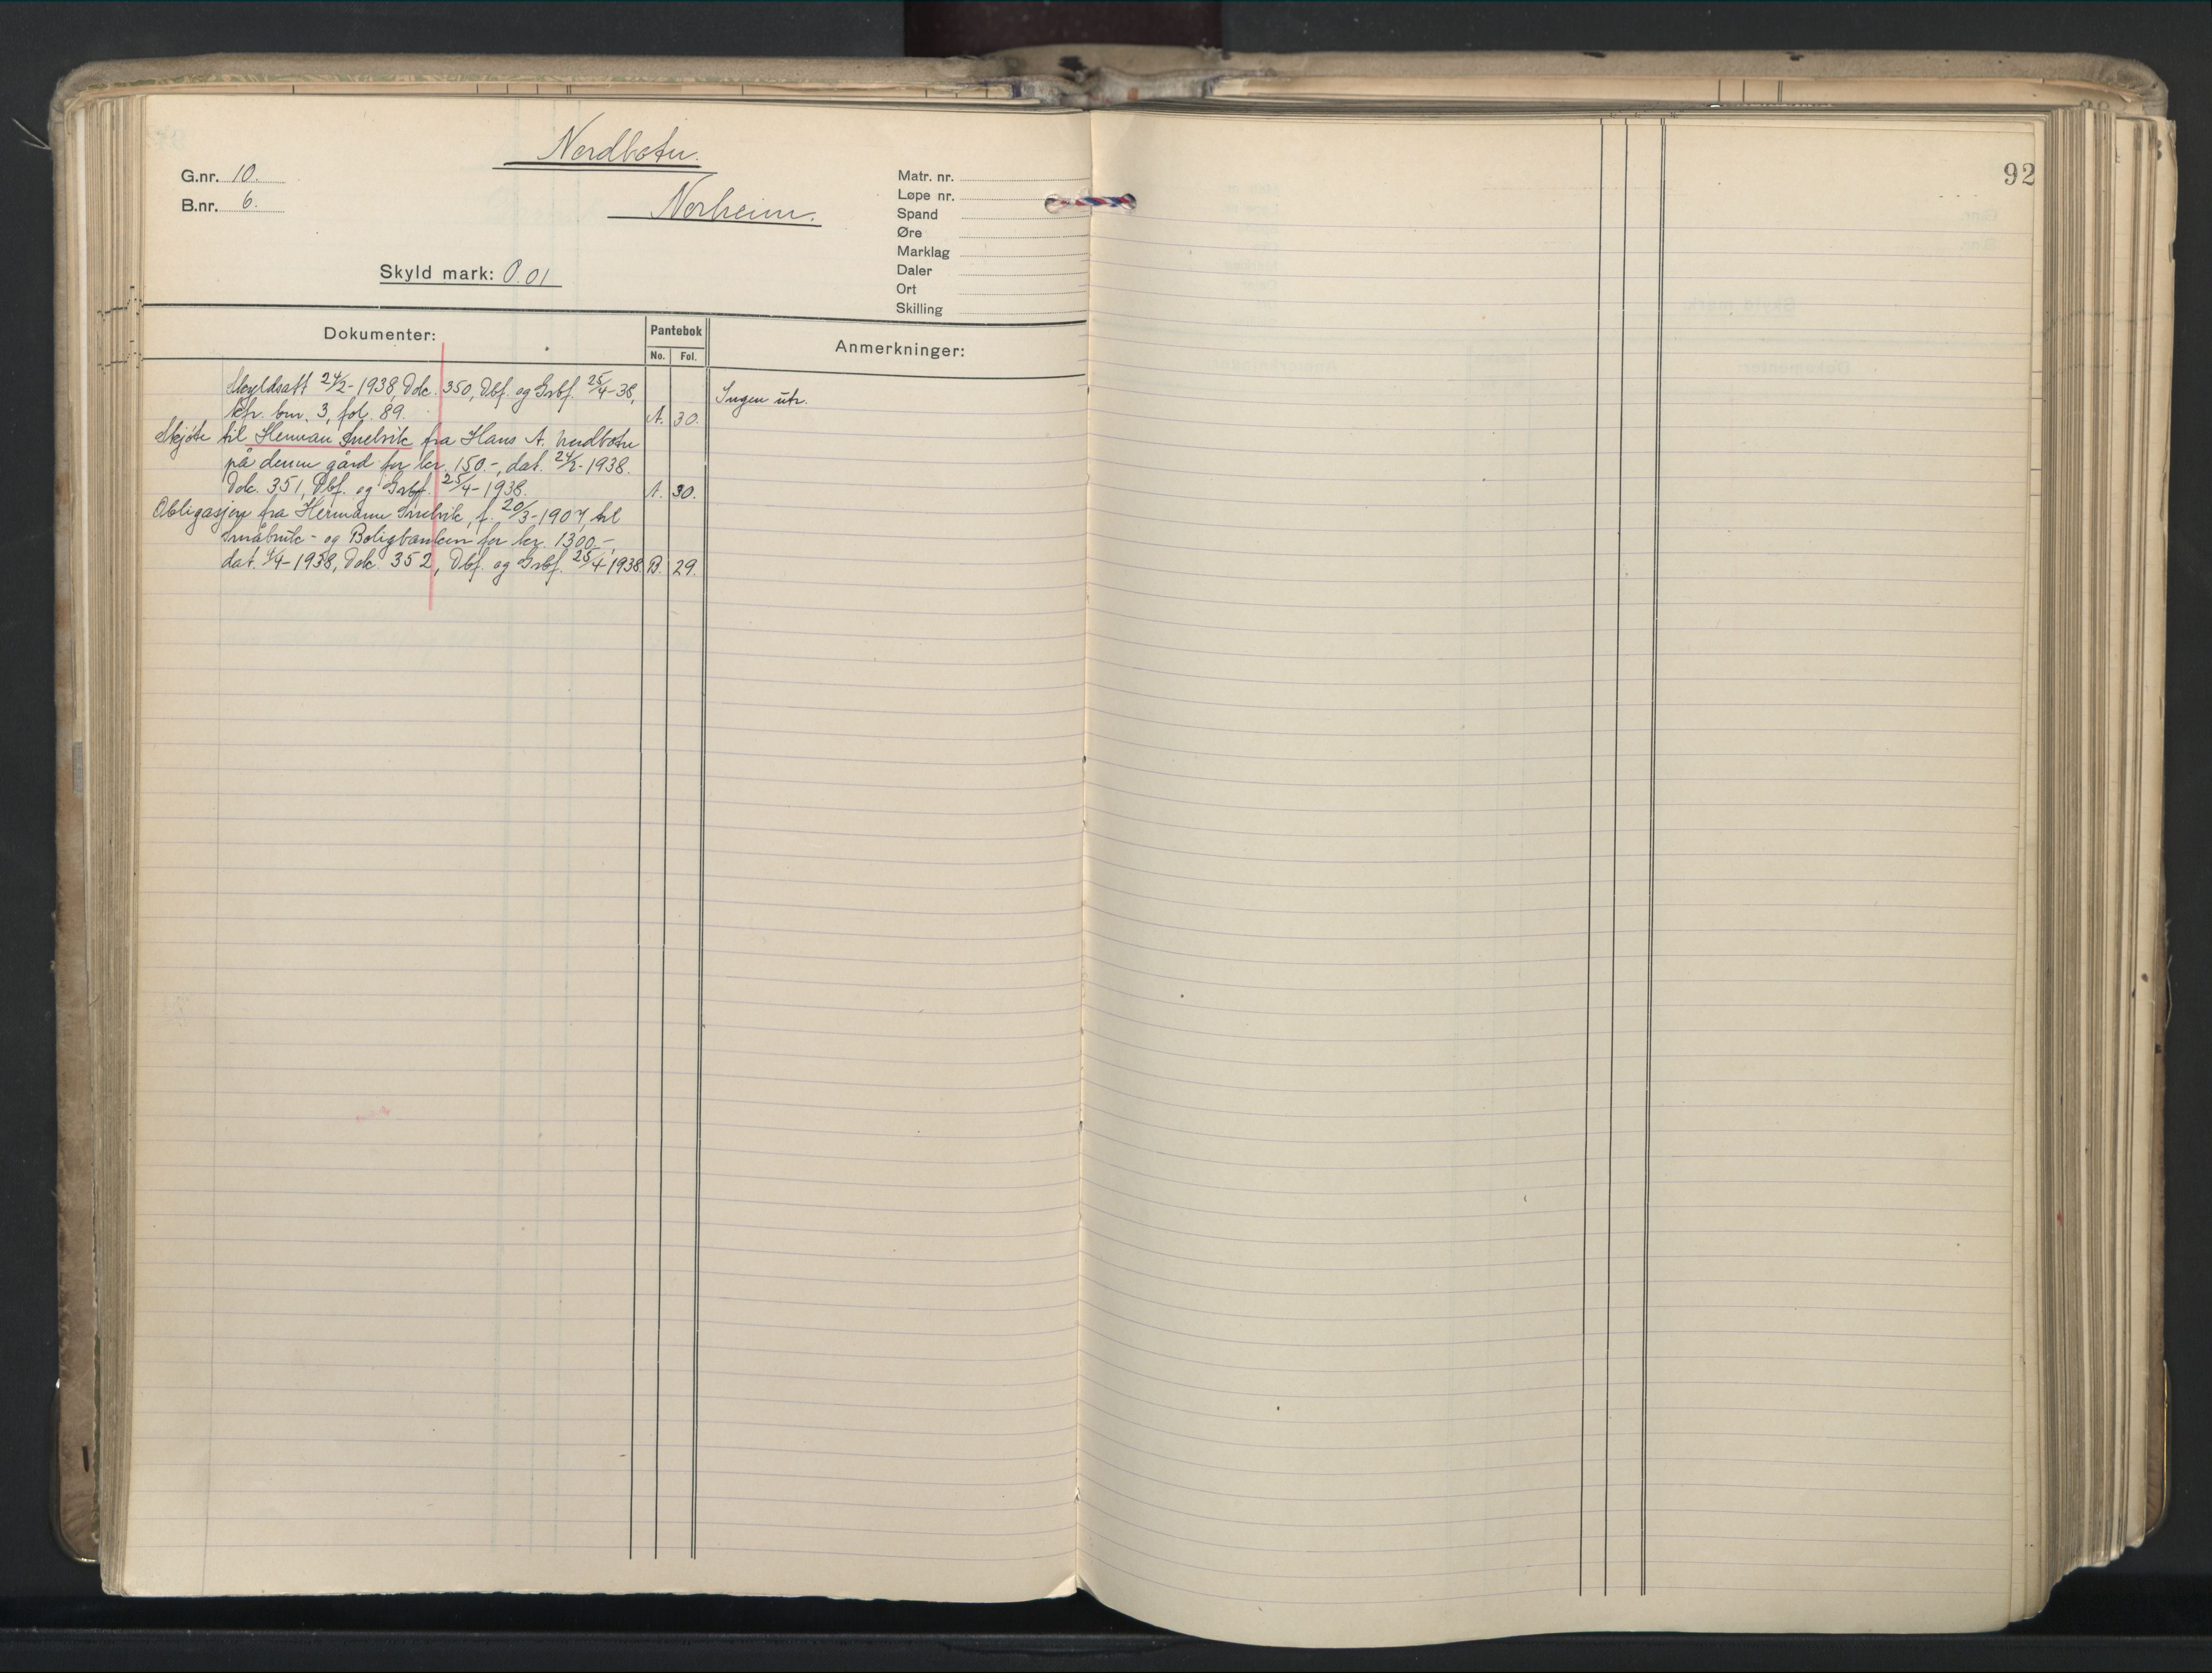 92
Nordbotn.
G.nr. 10.
B.nr. 6.
Norheim.
Skyld mark: 0.01
Matr. nr.
Løpe nr.
Spand
Øre
Marklag
Daler
Ort
Skilling
Dokumenter:
Pantebok
No. Fol.
Anmerkninger:
Skyldsatt 24/2-1938, Dok. 350, Dbf. og Grbf. 25/4-38,
kfr. bnr. 3, fol. 89. A. 30.
Ingen utr.
Skjøte til Herman Snelvik fra Hans A. Nordbotn
på denne gård for kr. 150.-, dat. 24/2-1938.
Dok. 351, Dbf. og Grbf. 25/4-1938. A. 30.
Obligasjon fra Hermann Snelvik, f. 20/3-1907, til
Småbruk- og Boligbanken for kr. 1300.-,
dat. 4/4-1938, Dok. 352, Dbf. og Grbf. 25/4-1938 B. 29.